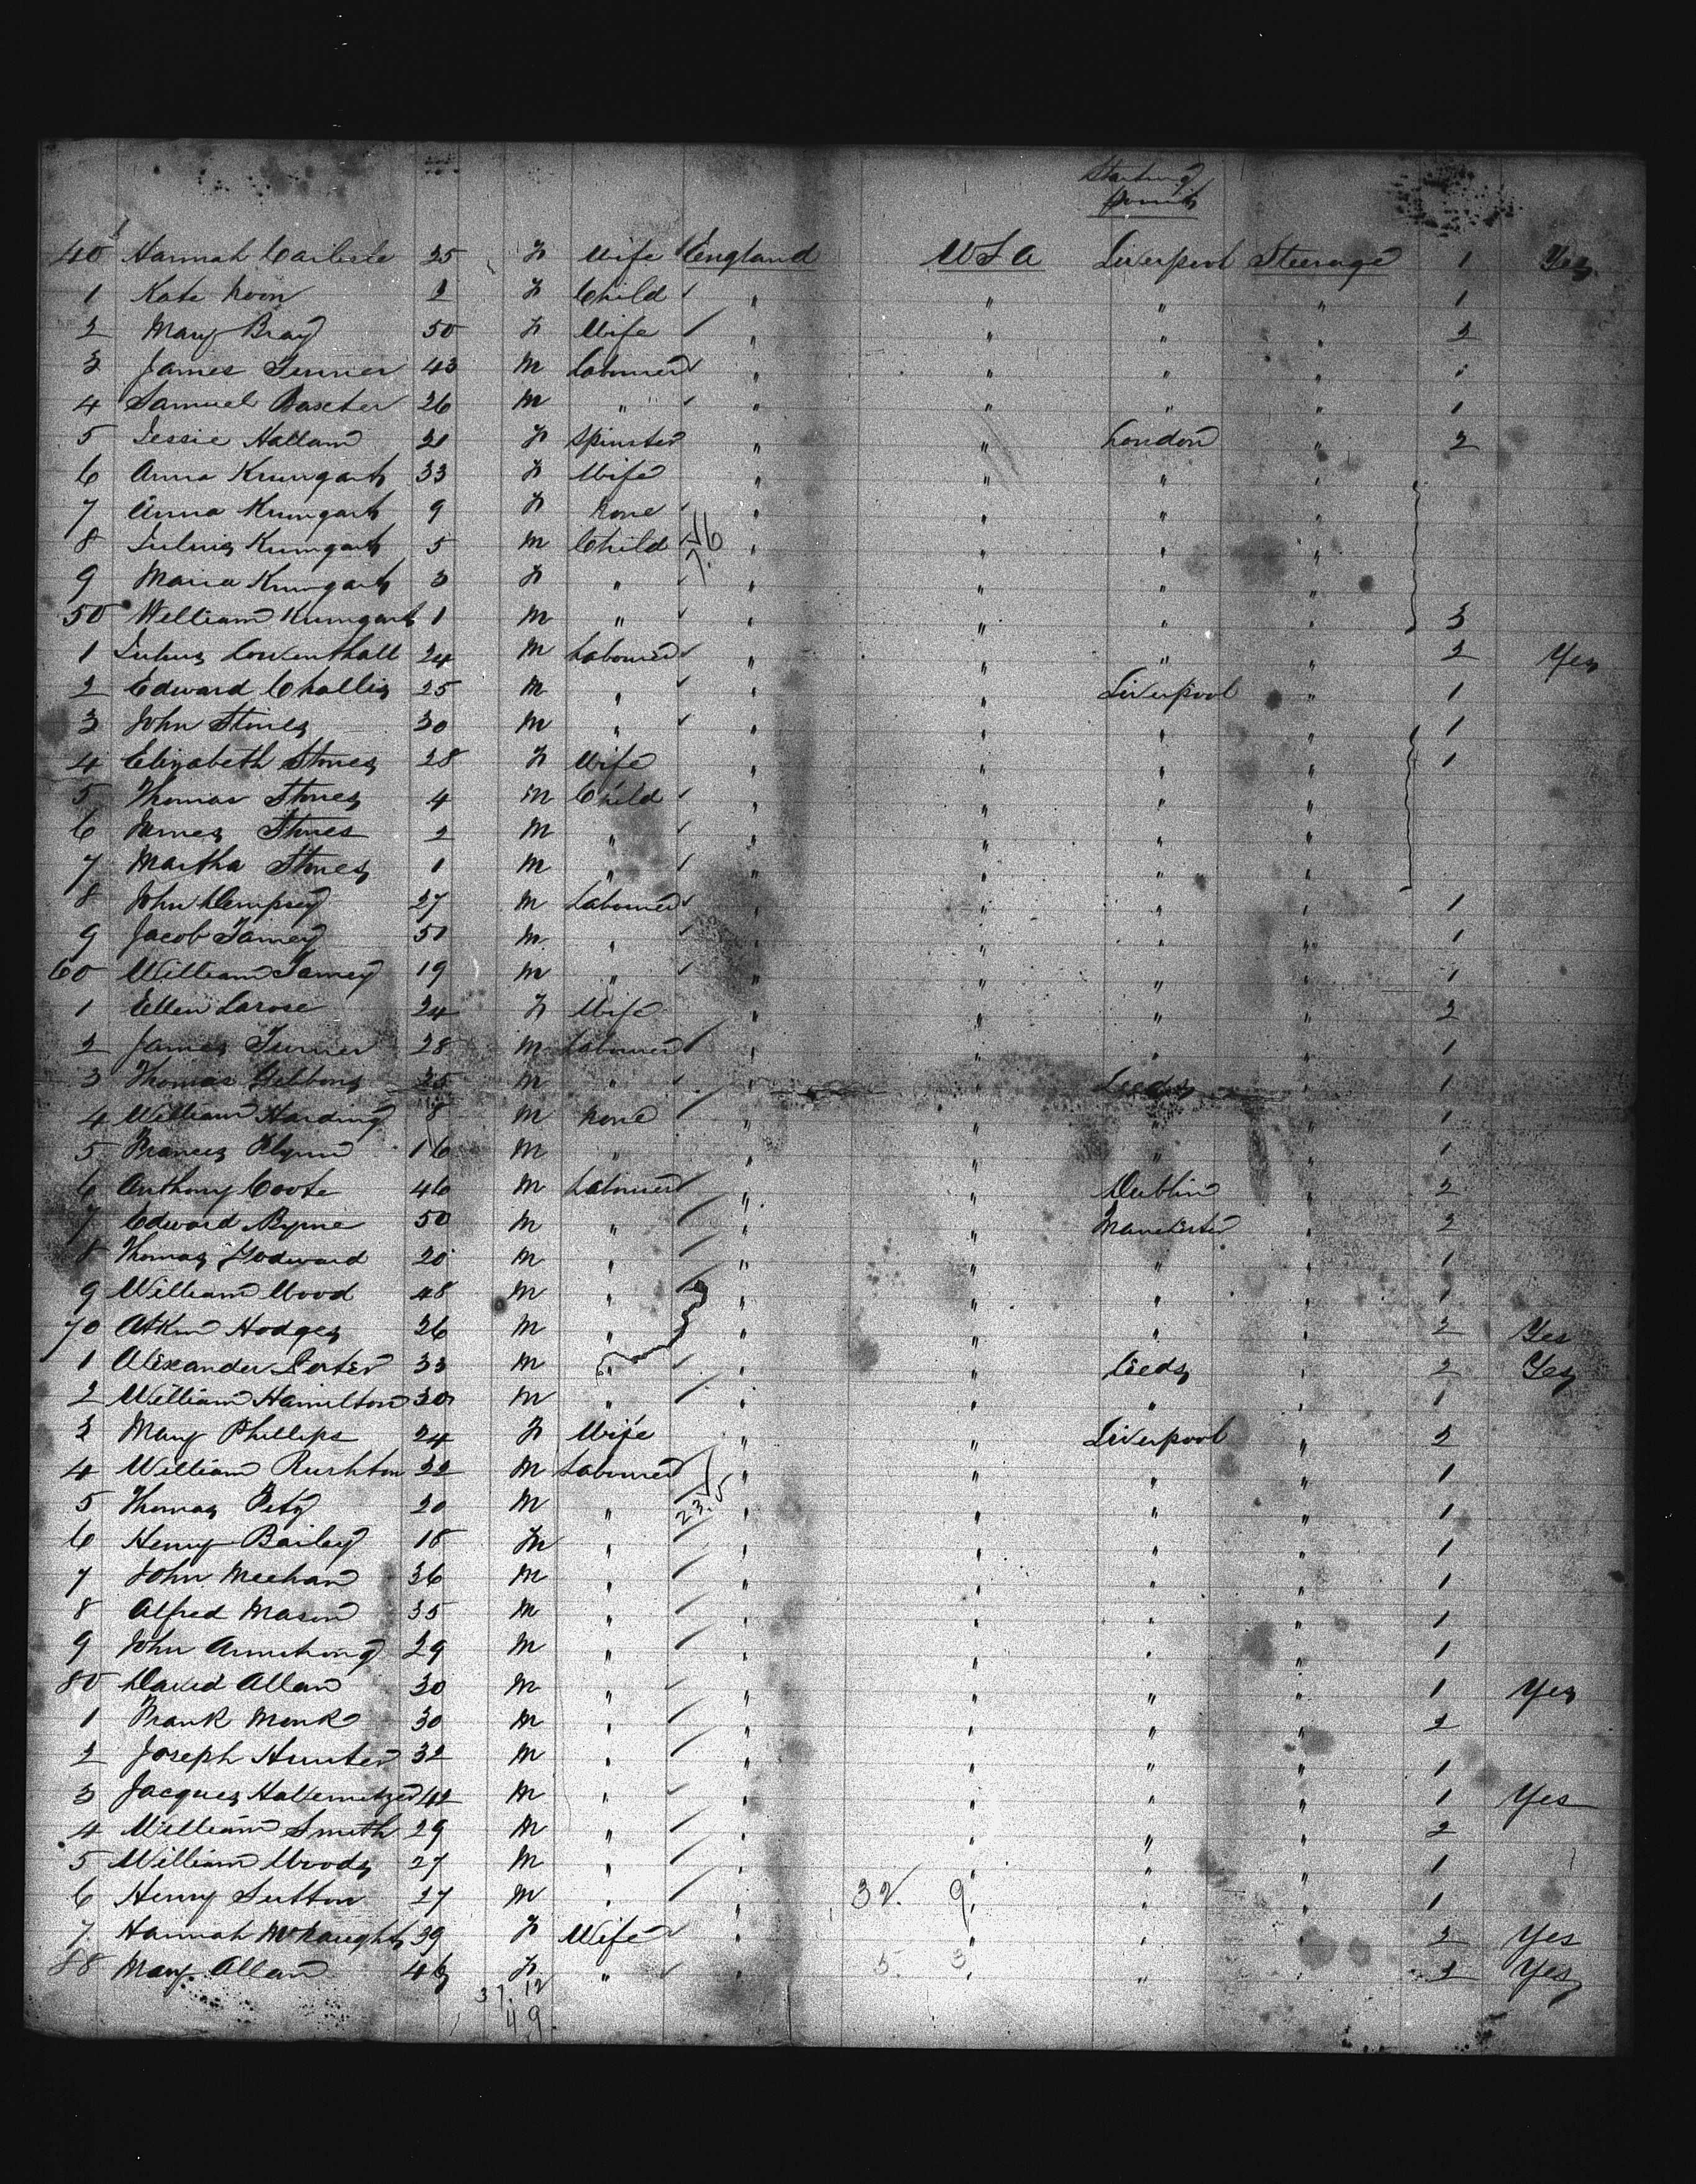 Starting
point
40 Hannah Carlisle 25 F Wife England USA Liverpool Steerage 1 Yes
1 Kate Noon 2 F Child " " " " 1
2 Mary Bray 50 F Wife " " " " 2
3 James Turner 43 M Labourer " " " " 1
4 Samuel Baxter 26 M " " " " " 1
5 Jessie Hallam 21 F Spinster " " London " 2
6 Anna Kumgart 33 F Wife " " " "
7 Anna Kumgart 9 F None " " " "
8 Julius Kumgart 5 M Child " " " "
9 Maria Kumgart 3 F " " " " "
50 William Kumgart 1 M " " " " " 3
1 Julius Lowenthall 24 M Labourer " " " " 2 Yes
2 Edward Challis 25 M " " " Liverpool " 1
3 John Stones 30 M " " " " " 1
4 Elizabeth Stones 28 F Wife " " " " 1
5 Thomas Stones 4 M Child " " " "
6 James Stones 2 M " " " " "
7 Martha Stones 1 M " " " " "
8 John Dempsey 27 M Labourer " " " " 1
9 Jacob Tamey 51 M " " " " " 1
60 William Tamey 19 M " " " " " 1
1 Ellen Larose 24 F Wife " " " " 2
2 James Turner 28 M Labourer " " " " 1
3 Thomas Gibbons 25 M " " " Leeds " 1
4 William Harding 8 M None " " " " 1
5 Frances Flynn 16 M " " " " " 1
6 Anthony Coote 46 M Labourer " " Dublin " 2
7 Edward Byrne 50 M " " " Manchester " 2
8 Thomas Godward 20 M " " " " " 1
9 William Wood 48 M " " " " " 1
70 Atkin Hodges 26 M " " " " " 2 Yes
1 Alexander Porter 33 M " " " Leeds " 2 Yes
2 William Hamilton 30 M " " " " " 1
3 Mary Phillips 24 F Wife " " Liverpool " 2
4 William Rushton 22 M Labourer " " " " 1
5 Thomas Pety 20 M " 23.5 " " " " 1
6 Henry Bailey 18 M " " " " " 1
7 John Meehan 36 M " " " " " 1
8 Alfred Mason 35 M " " " " " 1
9 John Armstrong 29 M " " " " " 1
80 David Allan 30 M " " " " " 1 Yes
1 Frank Monk 30 M " " " " " 2
2 Joseph Hunter 32 M " " " " " 1
3 Jacques 42 M " " " " " 1 Yes
4 William Smith 29 M " " " " " 2
5 William Woods 27 M " " " " " 1
6 Henry Sutton 27 M " " 32. 9 " " " 1
7 Hannah McNaught 39 F Wife " " " " 2 Yes
88 Mary Allan F " " 5. 3 " " " 2 Yes
37.12
49